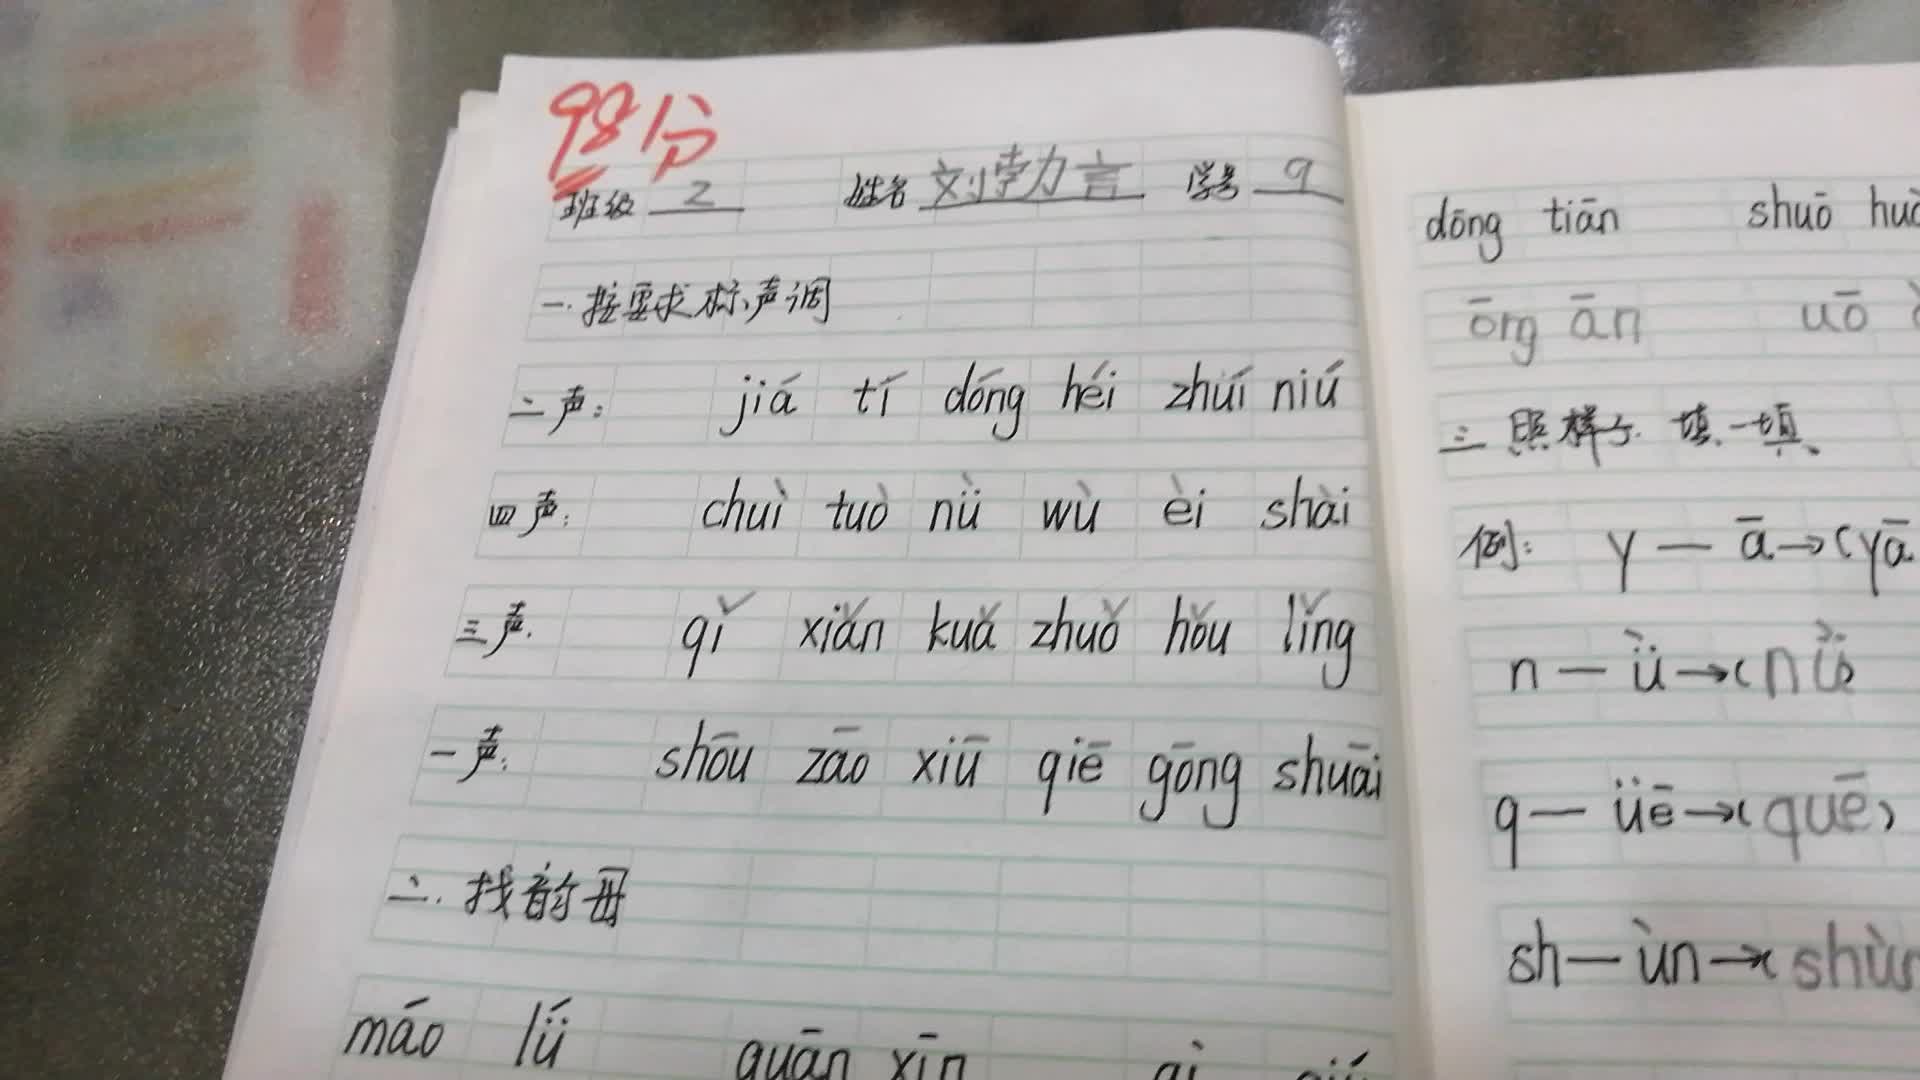 98分
班级 2 姓名 刘勃言 学号 9
一.按要求标声调
二声: jiá tí dóng héi zhuí niú
四声: chuì tuò nǜ wù èi shài
三声. qǐ xiǎn kuǎ zhuǒ hǒu lǐng
一声: shōu zāo xiū qiē gōng shuāi
二.找韵母
máo lǘ quān xīn
dōng tiān shuō
ōng ān uō
三 照样子.填一填
例: y — ā→(yā
n — ǜ→(nǜ)
q — üē→(quē)
sh — ùn→(shùn